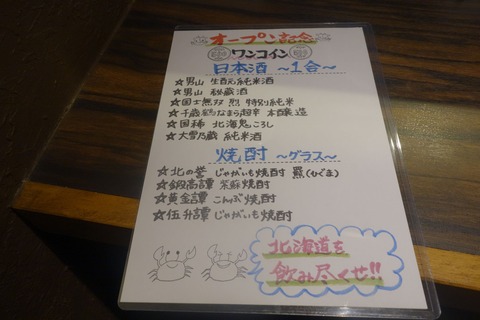 オープン記念
ワンコイン
日本酒 〜1合〜
☆男山 生酛純米酒
☆男山 秘蔵酒
☆国士無双 烈 特別純米
☆千歳鶴なまら超辛 本醸造
☆国稀 北海鬼ころし
☆大雪乃蔵 純米酒
焼酎 〜グラス〜
☆北の誉 じゃがいも焼酎 羆(ひぐま)
☆鍛高譚 紫蘇焼酎
☆黄金譚 こんぶ焼酎
☆伍升譚 じゃがいも焼酎
北海道を
飲み尽くせ!!